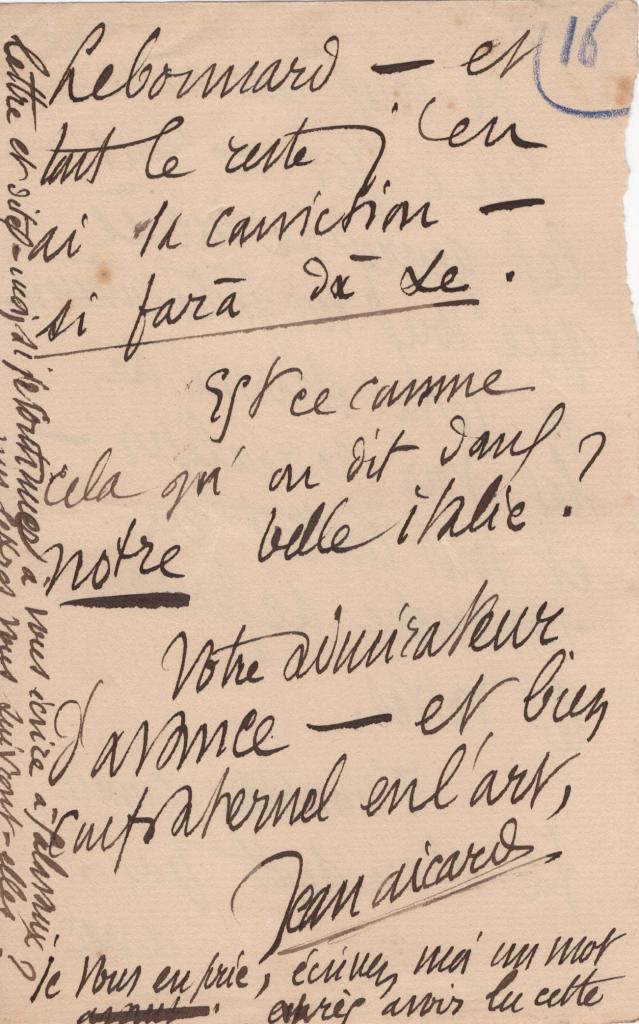 16
Lebonnard — et
tout le reste j'en
ai la conviction —
si farà da se.
Est ce comme
cela qu'on dit dans
notre belle italie ?
Votre admirateur
d'avance — et bien
confraternel en l'art,
Jean aicard
je vous en prie, écrivez moi un mot
après avoir lu cette
lettre et dites-moi, si je continue à vous écrire à
mes lettres vous suivront-elles